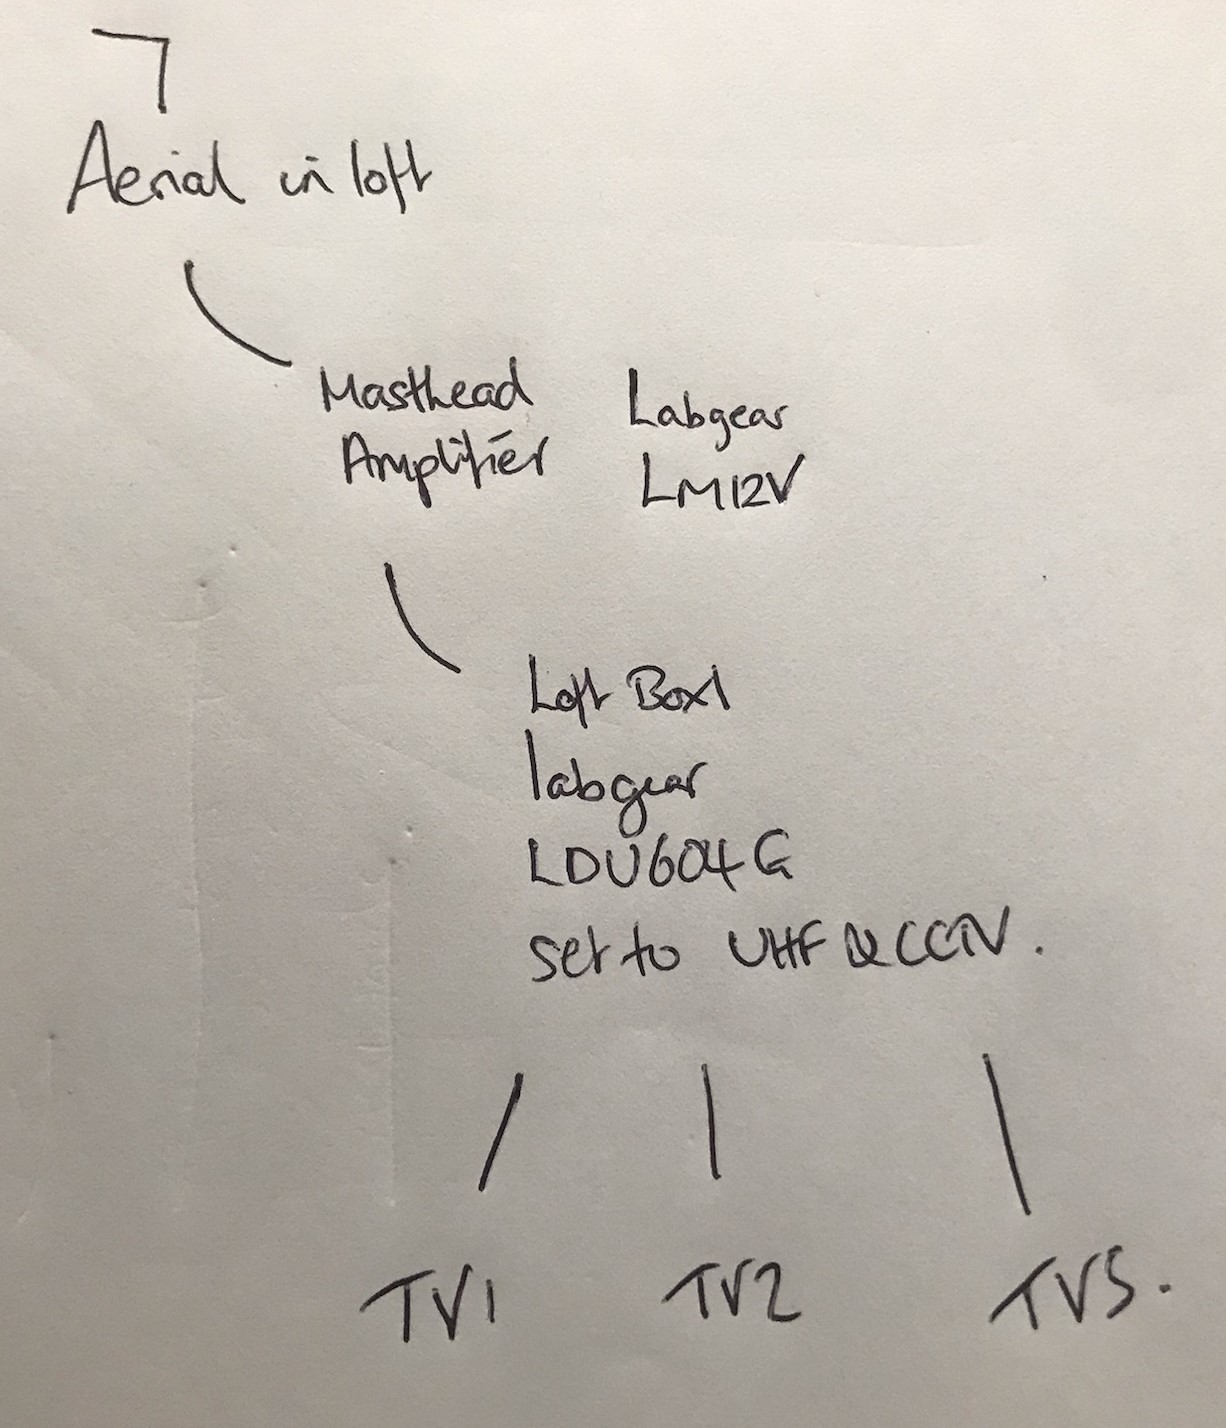 Aerial in loft
Masthead
Amplifier
Labgear
LM12V
Loft Box 1
labgear
LDU604G
set to UHF & CCTV.
TV1
TV2
TV3.